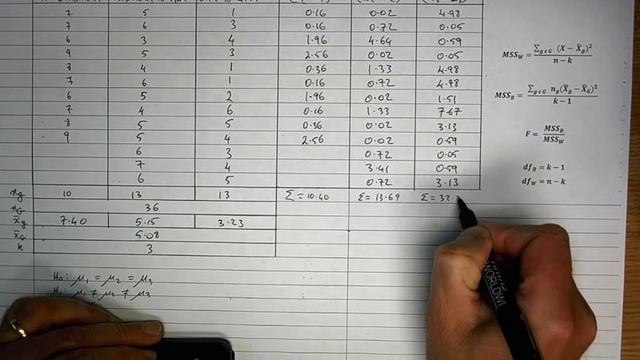 7 5 0.16 0.02 4.98
7 6 3 0.16 0.72 0.05
6 3 4 1.96 4.64 0.59
9 5 3 2.56 0.02 0.05
8 4 1 0.36 1.33 4.98
7 6 1 0.16 0.72 4.98
6 5 2 1.96 0.02 1.51
7 4 6 0.16 1.33 7.67
8 5 5 0.36 0.02 3.13
9 5 4 2.56 0.02 0.59
6 3 0.72 0.05
7 4 3.41 0.59
6 5 0.72 3.13
n_g 10 13 13 Σ = 10.40 Σ = 13.69 Σ = 32.
n_G 36
x̄_g 7.40 5.15 3.23
x̄_G 5.08
k 3
H₀: μ₁ = μ₂ = μ₃
H₁: μ₁ ≠ μ₂ ≠ μ₃
MSS_W = Σ_{g∈G} (X − X̄_g)² / n−k
MSS_B = Σ_{g∈G} n_g(X̄_g − X̄_G)² / k−1
F = MSS_B / MSS_W
df_B = k − 1
df_W = n − k
WORLDWI